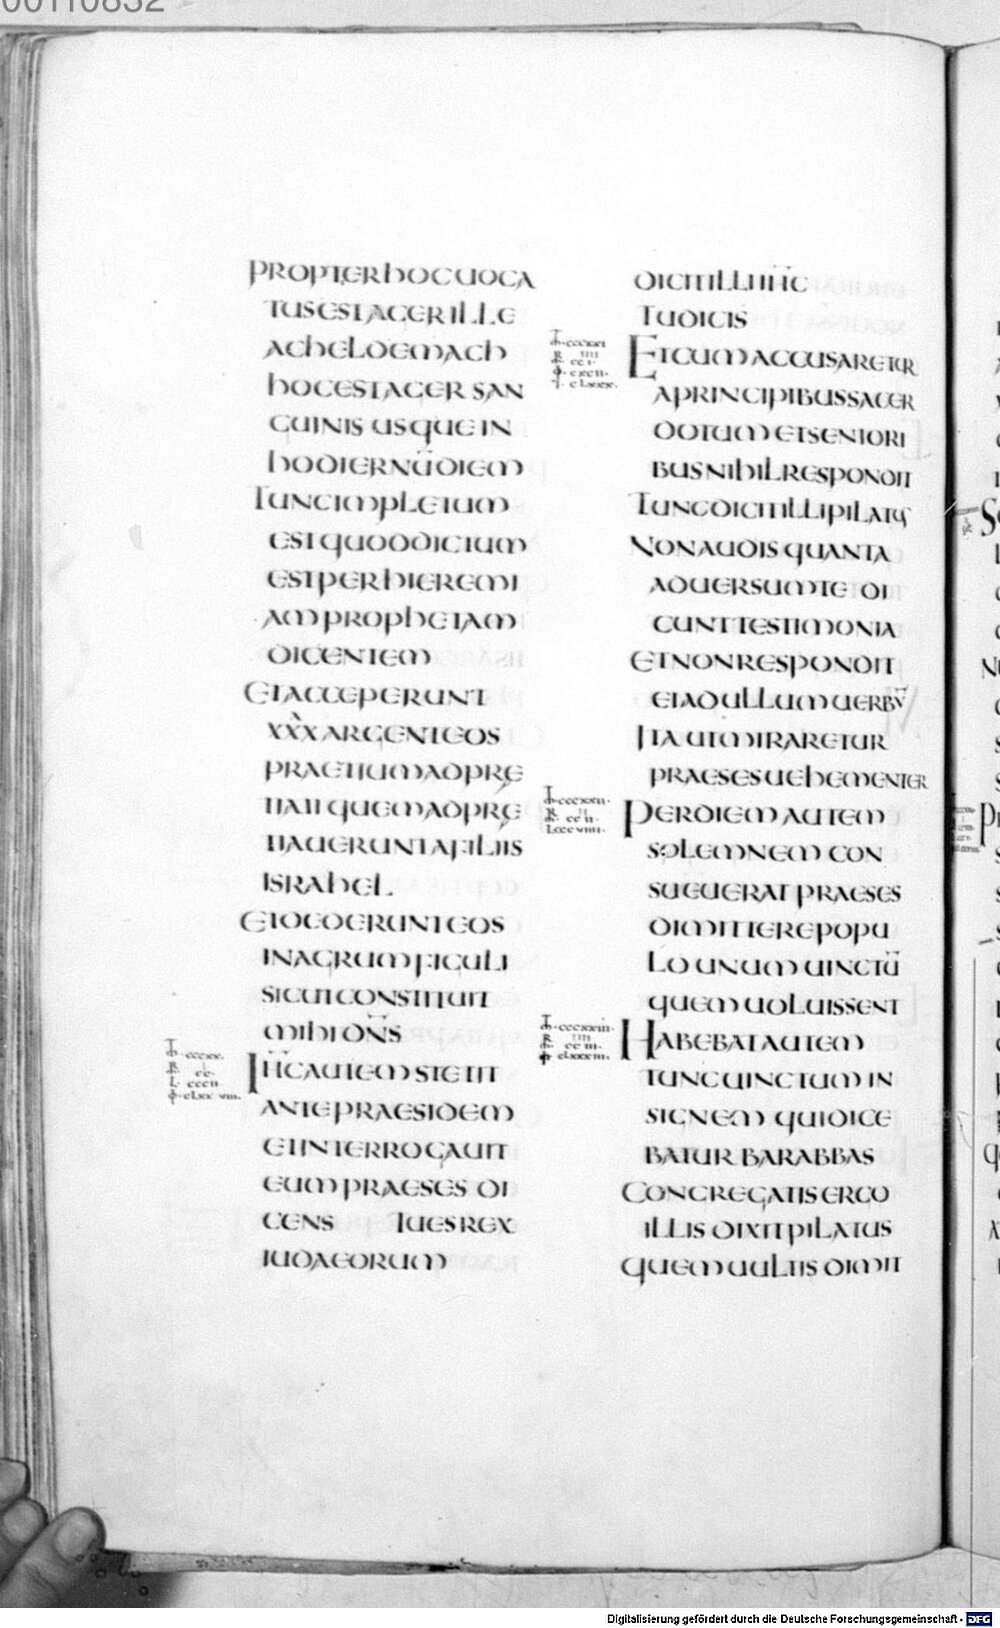 00110832
PROPTERHOCUOCA
TUSESTAGERILLE
ACHELDEMACH
HOCESTAGERSAN
GUINISUSQUEIN
HODIERNŪDIEM
TUNCIMPLETUM
ESTQUODDICTUM
ESTPERHIEREMI
AMPROPHETAM
DICENTEM
ETACCEPERUNT
XXX ARGENTEOS
PRAETIUMADPRE
TIATIQUEMADPRE
TIAUERUNTAFILIIS
ISRAHEL
ETDEDERUNTEOS
INAGRUMFIGULI
SICUTCONSTITUIT
MIHIDN̄S
M·CCCXX·
R I
CC·
L·CCCII
IO·CLXXVIII·
IH̄CAUTEMSTETIT
ANTEPRAESIDEM
ETINTERROGAUIT
EUMPRAESESDI
CENS TUESREX
IUDAEORUM
DICITILLIIH̄C
TUDICIS
M·CCCXXI
R IIII
CCI·
IO·CXCII·
L·CLXXX·
ETCUMACCUSARETUR
APRINCIPIBUSSACER
DOTUMETSENIORI
BUSNIHILRESPONDIT
TUNCDICITILLIPILATUS
NONAUDISQUANTA
ADUERSUMTEDI
CUNTTESTIMONIA
ETNONRESPONDIT
EIADULLUMUERBŪ
ITAUTMIRARETUR
PRAESESUEHEMENTER
M·CCCXXII·
R II
CCII·
L·CCCVIIII·
PERDIEMAUTEM
SOLEMNEMCON
SUEUERATPRAESES
DIMITTEREPOPU
LOUNUMUINCTŪ
QUEMUOLUISSENT
M·CCCXXIII·
R IIII
CCIII·
IO·CLXXXIII·
HABEBATAUTEM
TUNCUINCTUMIN
SIGNEMQUIDICE
BATURBARABBAS
CONGREGATISERGO
ILLISDIXITPILATUS
QUEMUULTISDIMIT
Digitalisierung gefördert durch die Deutsche Forschungsgemeinschaft - DFG